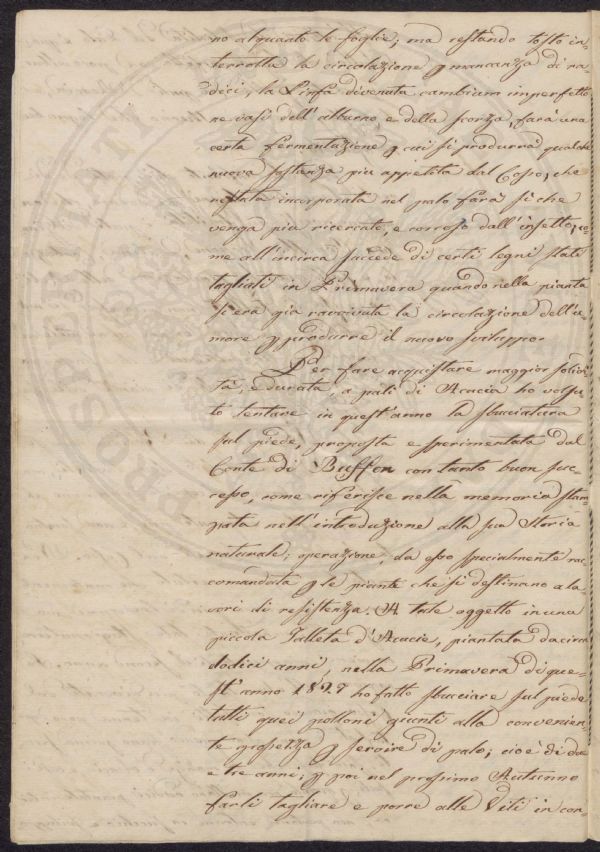 no alquanto le foglie; ma restando tosto in=
terrotta la circolazione p mancanza di ra=
dici, la Linfa divenuta cambium imperfetto
ne vasi dell'alburno, e della scorza, farà una
certa fermentazione p cui si produrrà qualche
nuova sostanza più appetita dal Coso, che
restata incorporata nel palo farà sì che
venga più ricercato, e corroso dall'insetto, co=
me all'incirca succede di certi legni stati
tagliati in Primavera quando nella pianta
si era già ravvivata la circolazione dell'u=
more p produrre il nuovo sviluppo.
Per fare acquistare maggior solidi=
tà, e durata, a pali di Acacia ho volsu=
to tentare in quest'anno la sbucciatura
sul piede, proposta e sperimentata dal
Conte di Buffon con tanto buon suc=
cesso, come riferisce nella memoria stam=
pata nell'introduzione alla sua Storia
naturale; operazione, da esso specialmente rac=
comandata p le piante che si destinano a la=
vori di resistenza. A tale oggetto in una
piccola Palleta d'Acacie, piantata da circa
dodici anni, nella Primavera di que=
st'anno 1827 ho fatto sbucciare sul piede
tutti quei polloni giunti alla convenien=
te grossezza p servire di palo; cioè di due
e tre anni; p poi nel prossimo Autunno
farli tagliare e porre alle Viti in con=
PROSPERITATI